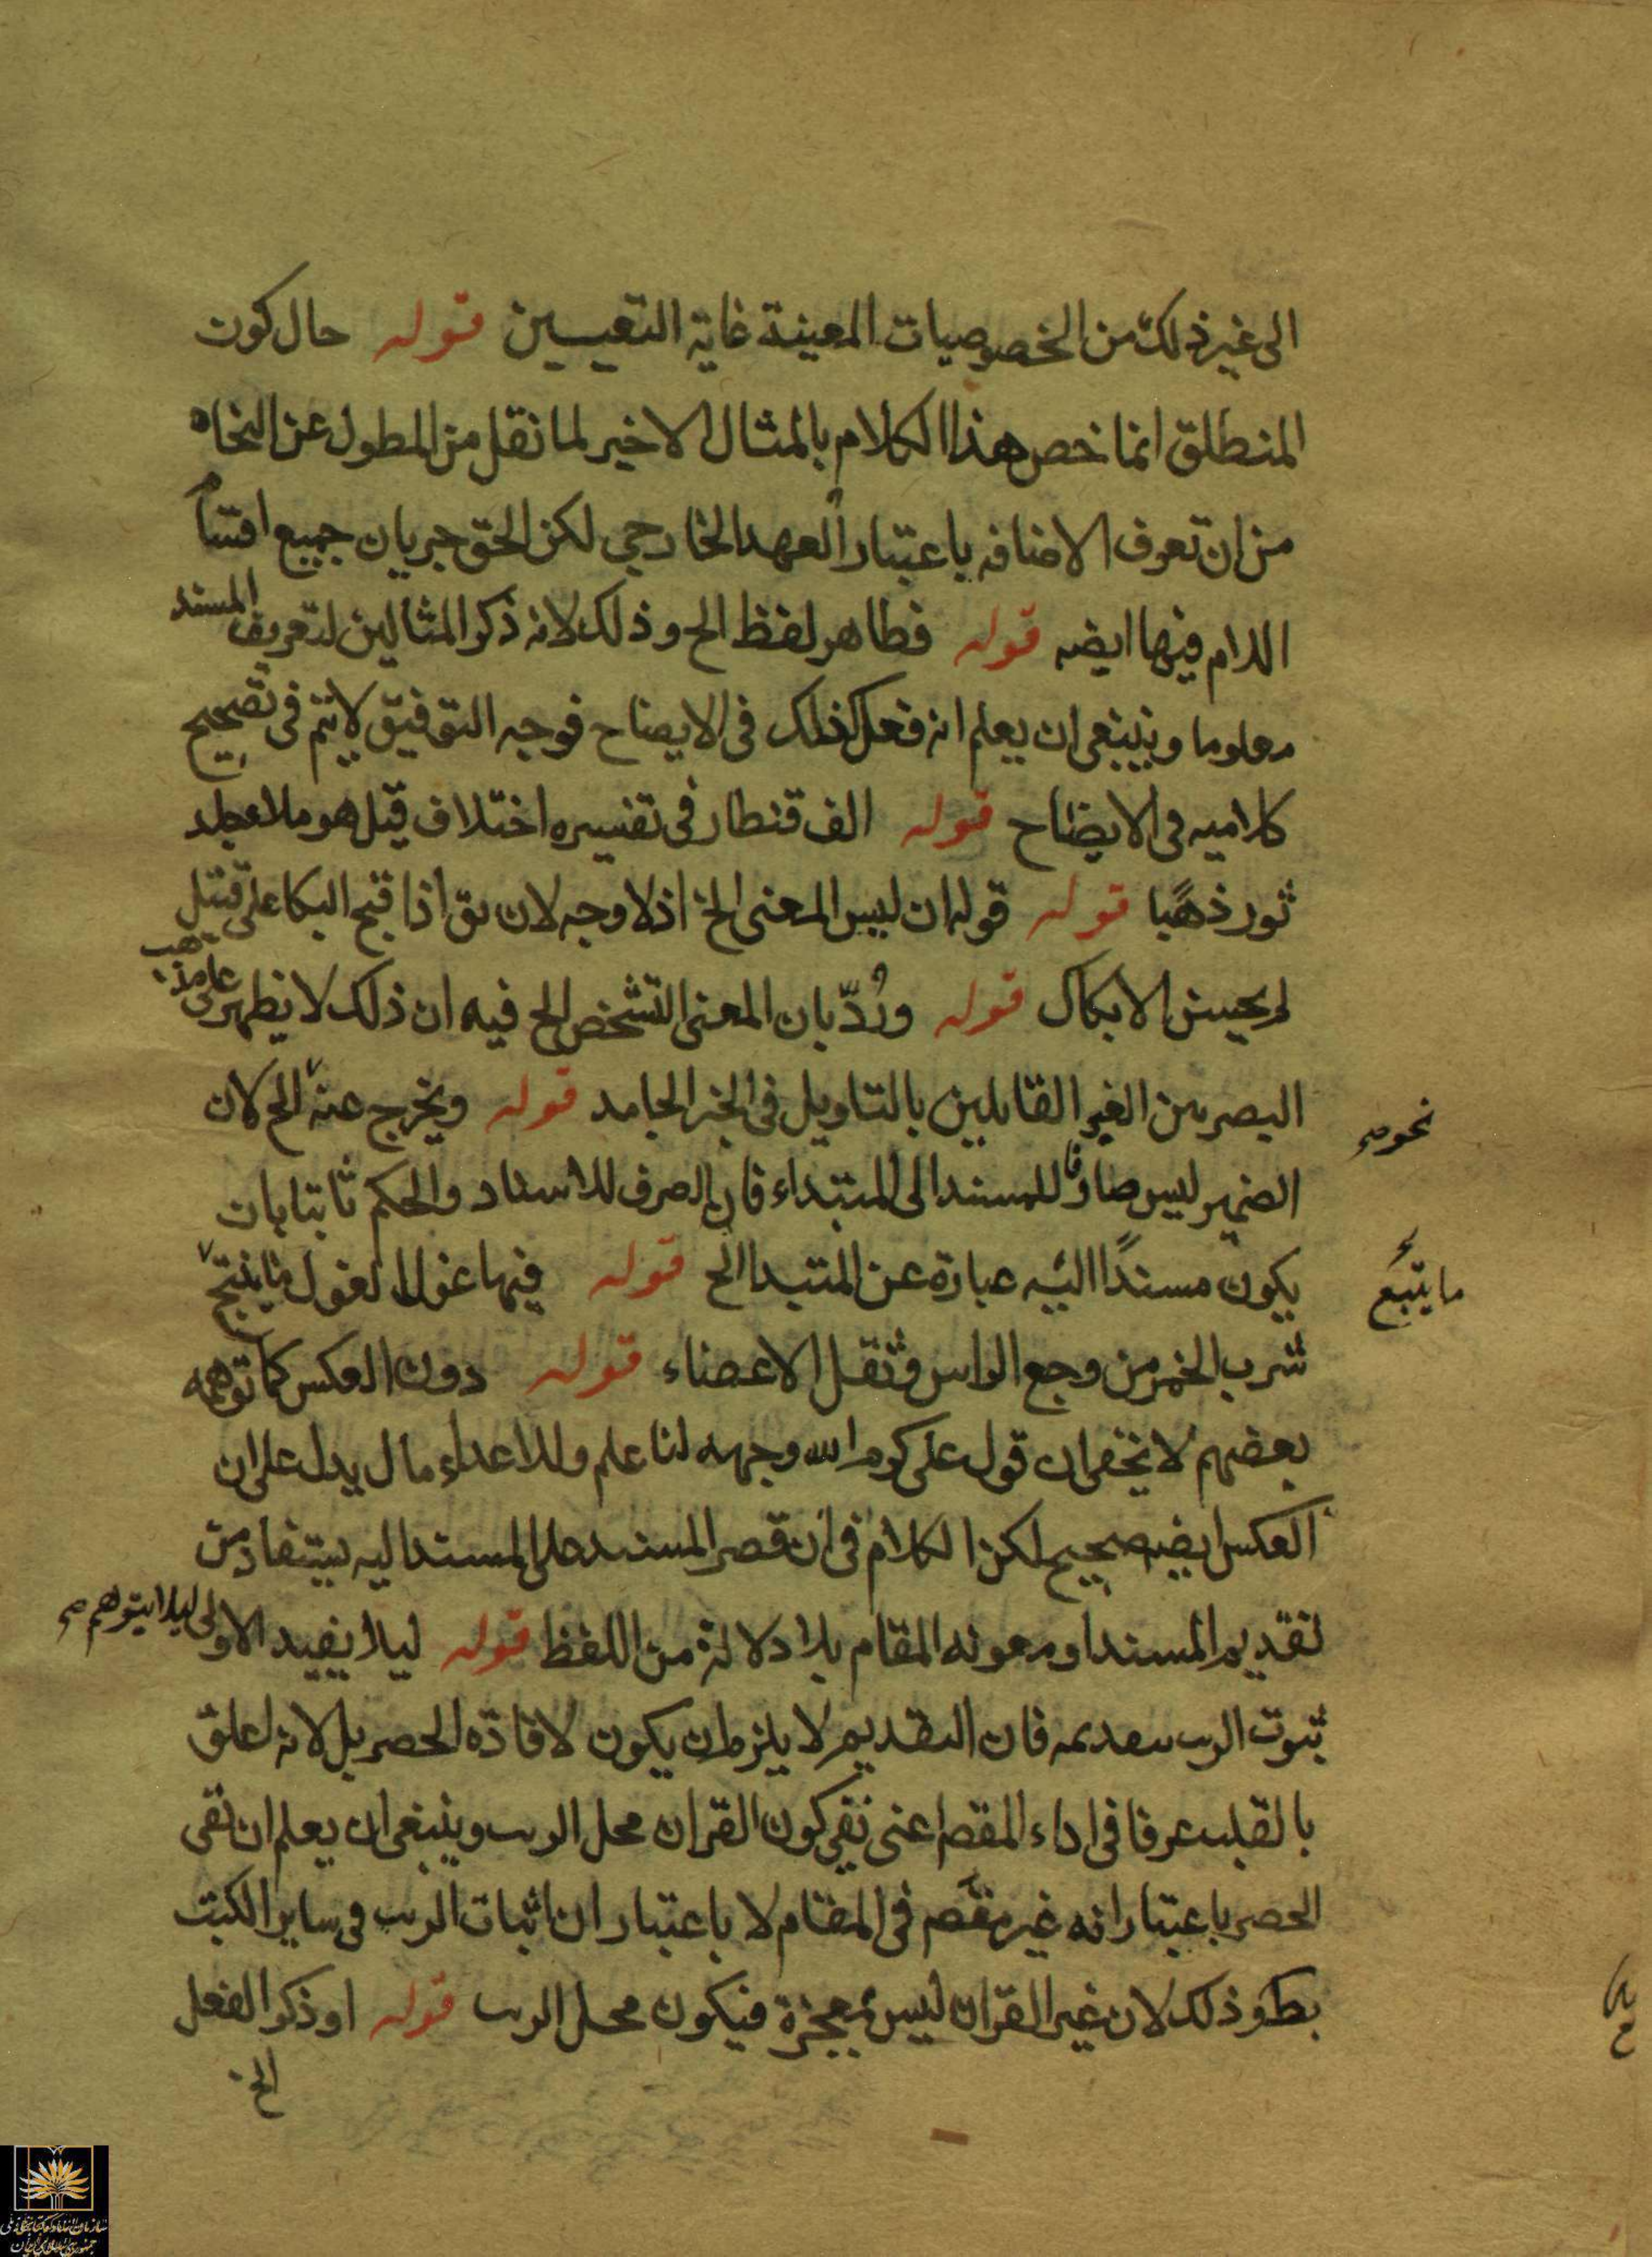 الى غير ذلك من الخصوصيات المعينة غاية التعيين قوله حال كون
المنطلق انما خص هذا الكلام بالمثال الاخير لما نقل من المطول عن النحاه
من ان تعرف الاضافه باعتبار العهد الخارجي لكن الحق جريان جميع اقسام
اللام فيها ايضه قوله فظاهر لفظ الخ وذلك لانه ذكر المثالين لتعريف المسند
معلوما وينبغى ان يعلم انه فعل كذلك فى الايضاح فوجه التوفيق لا يتم فى تصحيح
كلاميه فى الايضاح قوله الف قنطار فى تفسيره اختلاف قيل هو ملا جلد
ثور ذهبًا قوله قوله ان ليس المعنى الخ اذ لا وجه لان يق اذا قبح البكا على قتيل
لم يحسن الا بكاك قوله ورُدّ بان المعنى الشخص الخ فيه ان ذلك لا يظهر على مذهب
البصريين الغير القايلين بالتاويل فى الخبر الجامد قوله ويخرج عنه الخ لان
نحو صح
الضمير ليس صارفا للمسند الى المبتداء فان الصرف للاسناد والحكم ثابتا بان
يكون مسندًا اليه عبارة عن المبتدا الخ قوله فيها غول الغول ما ينتج
ما يتبع
شرب الخمر من وجع الراس وثقل الاعضاء قوله دون العكس كما توهمه
بعضهم لا يخفى ان قول على كرم الله وجهه لنا علم وللاعداء مال يدل على ان
العكس ايضه صحيح لكن الكلام فى ان قصر المسند على المسند اليه يستفاد من
تقديم المسند او معونه المقام بلا دلالة من اللفظ قوله ليلا يفيد الاولى ليلا يتوهم صح
ثبوت الريب بتقديمه فان التقديم لا يلزم ان يكون لافادة الحصر بل لانه اعلق
بالقلب عرفا فى اداء المقصم اعنى نفى كون القران محل الريب وينبغى ان يعلم ان نفى
الحصر باعتبار انه غير مقصم فى المقام لا باعتبار ان اثبات الريب فى ساير الكتب
بط وذلك لان غير القران ليس بمعجزة فيكون محل الريب قوله او ذكر الفعل
الخ